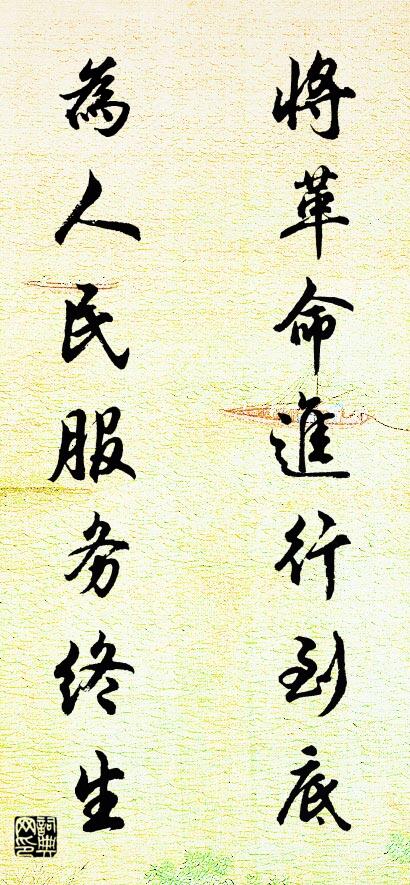 將革命進行到底
為人民服务终生
詞典
网印